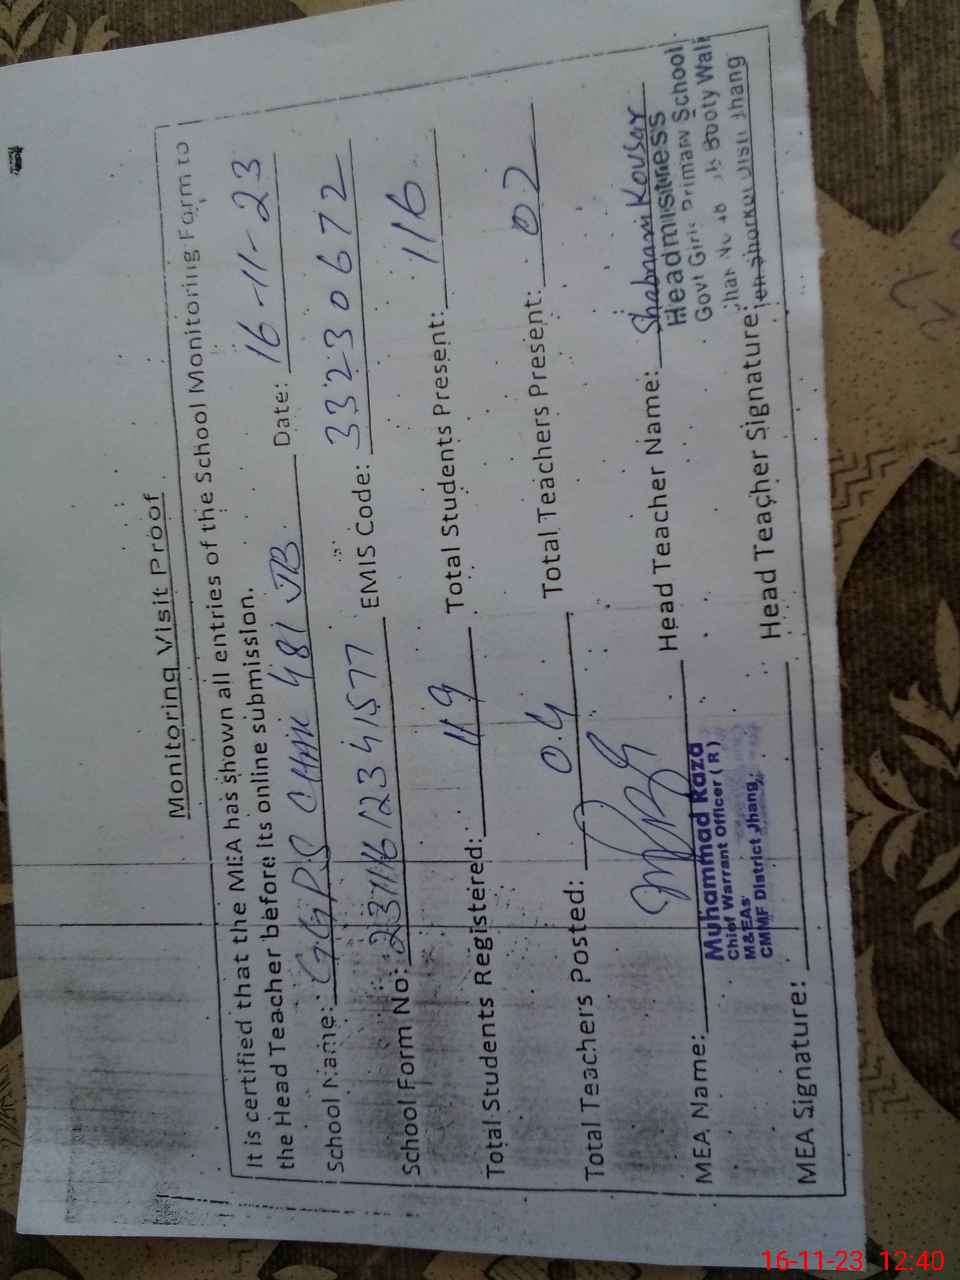 Monitoring Visit Proof
It is certified that the MEA has shown all entries of the School Monitoring Form to
the Head Teacher before its online submission.
School Name: GGPS CHAK 481 JB Date: 16-11-23
School Form No: 23111612341577 EMIS Code: 33230672
Total Students Registered: 119 Total Students Present: 116
Total Teachers Posted: 04 Total Teachers Present: 02
MEA Name: Head Teacher Name: Shabnam Kousar
Muhammad Raza
Chief Warrant Officer (R)
M&EAs
CMMF District Jhang.
Headmistress
Govt Girls Primary School
Booty Wali
Jhang
MEA Signature: Head Teacher Signature:
16-11-23 12:40